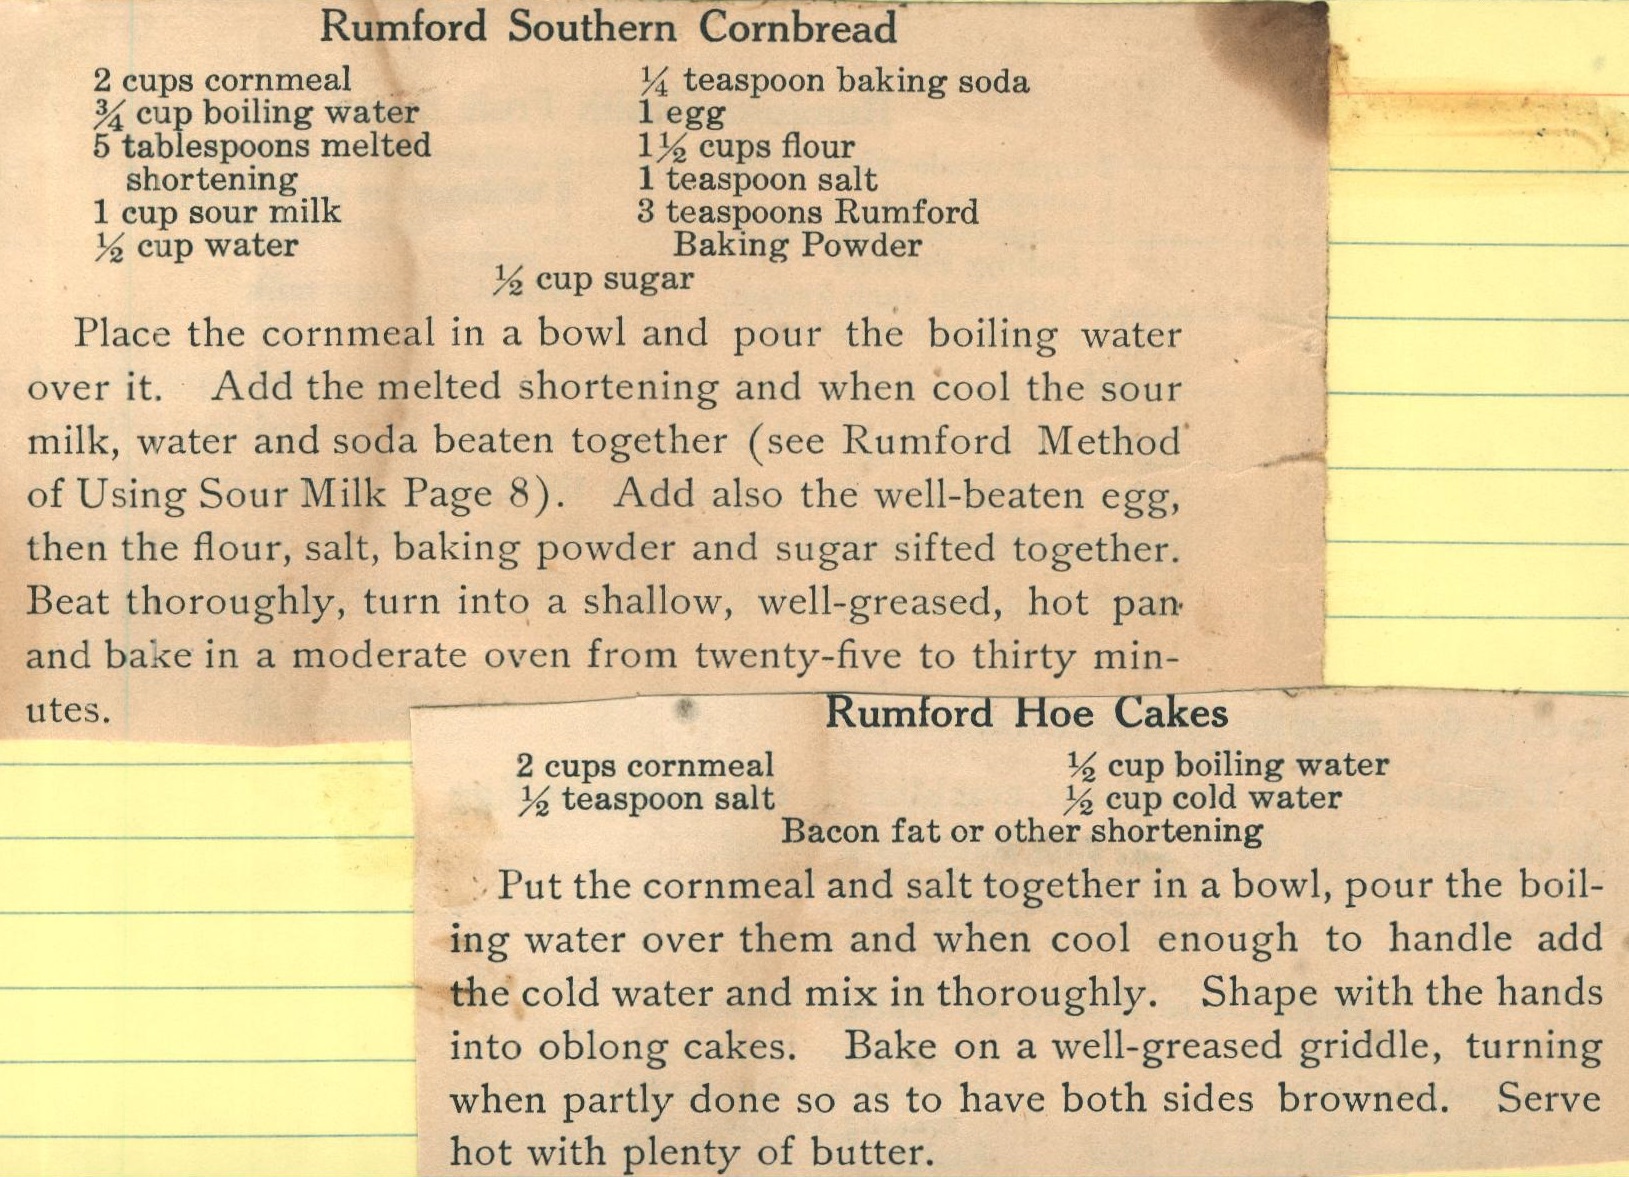 Rumford Southern Cornbread
2 cups cornmeal
¾ cup boiling water
5 tablespoons melted
shortening
1 cup sour milk
½ cup water
¼ teaspoon baking soda
1 egg
1½ cups flour
1 teaspoon salt
3 teaspoons Rumford
Baking Powder
½ cup sugar
Place the cornmeal in a bowl and pour the boiling water
over it. Add the melted shortening and when cool the sour
milk, water and soda beaten together (see Rumford Method
of Using Sour Milk Page 8). Add also the well-beaten egg,
then the flour, salt, baking powder and sugar sifted together.
Beat thoroughly, turn into a shallow, well-greased, hot pan
and bake in a moderate oven from twenty-five to thirty min-
utes.
Rumford Hoe Cakes
2 cups cornmeal
½ teaspoon salt
½ cup boiling water
½ cup cold water
Bacon fat or other shortening
Put the cornmeal and salt together in a bowl, pour the boil-
ing water over them and when cool enough to handle add
the cold water and mix in thoroughly. Shape with the hands
into oblong cakes. Bake on a well-greased griddle, turning
when partly done so as to have both sides browned. Serve
hot with plenty of butter.